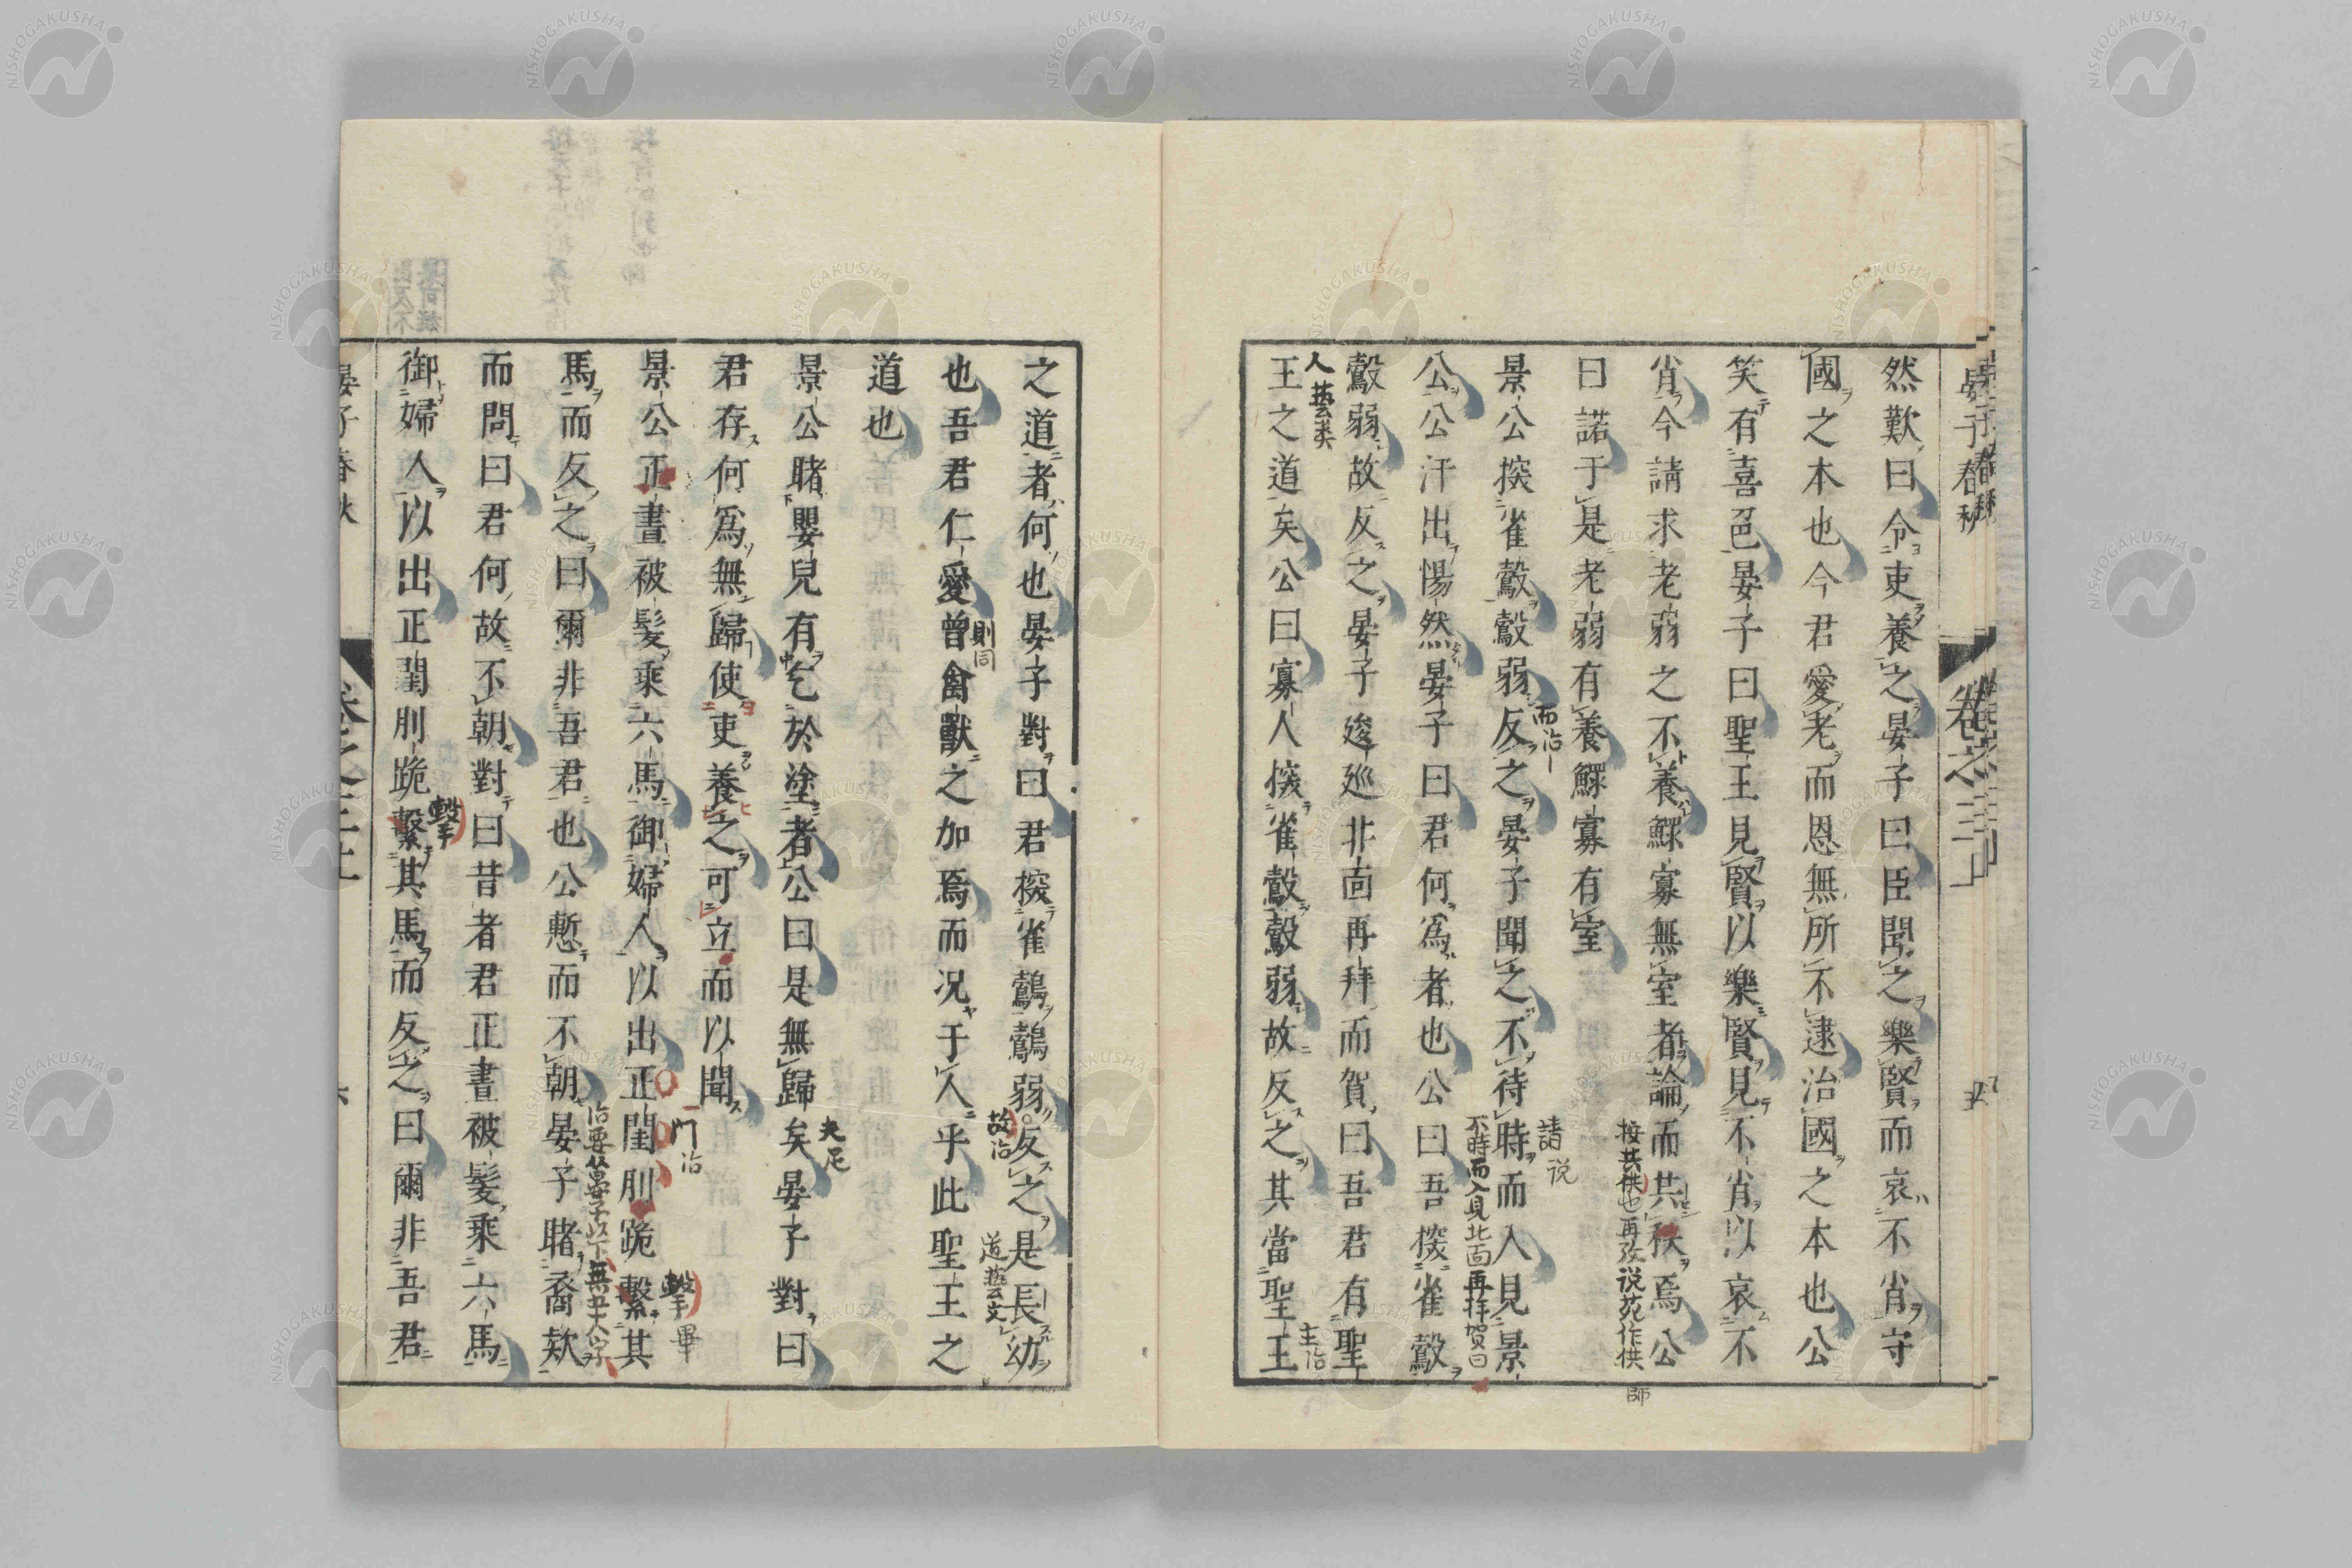 然歎曰令吏養之晏子曰臣聞之樂賢而哀不肖守
國之本也今君愛老而恩無所不逮治國之本也公
笑有喜色晏子曰聖王見賢以樂賢見不肖以哀不
肖今請求老弱之不養鰥寡無室者論而共秩焉公
按共供也再攷説苑作供
師
曰諾于是老弱有養鰥寡有室
景公探雀鷇鷇弱反之晏子聞之不待時而入見景
而治
請説
公公汗出惕然晏子曰君何爲者也公曰吾探雀鷇
不時而入見北面再拝賀曰
鷇弱故反之晏子逡巡非面再拜而賀曰吾君有聖
王之道矣公曰寡人探雀鷇鷇弱故反之其當聖王
人藝类
主治
之道者何也晏子對曰君探雀鷇鷇弱反之是長幼
故治
也吾君仁愛曾禽獸之加焉而况于人乎此聖王之
則同
道藝文
道也
景公睹嬰兒有乞於塗者公曰是無歸矣晏子對曰
夫尼
君存何爲無歸使吏養之可立而以聞
景公正晝被髮乘六馬御婦人以出正閨刖跪繫其
門治
擊畢
馬而反之曰爾非吾君也公慙而不朝晏子睹裔款
治要睹晏子以下無
而問曰君何故不朝對曰昔者君正晝被髮乘六馬
御婦人以出正閨刖跪繫其馬而反之曰爾非吾君
擊
晏子春秋
卷之
六
晏子春秋
卷之
五
NISHOGAKUSHA